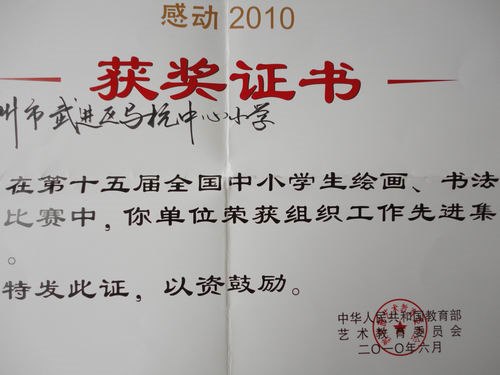 感动2010
获奖证书
州市武进区马杭中心小学
在第十五届全国中小学生绘画、书法
比赛中，你单位荣获组织工作先进集
。
特发此证，以资鼓励。
中华人民共和国教育部
艺术教育委员会
二〇一〇年六月